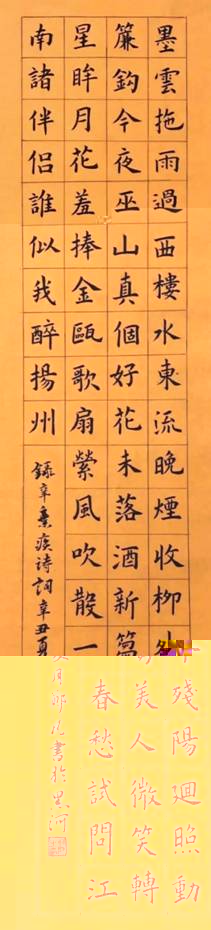 墨雲拖雨過西樓水東流晚煙收柳外殘陽廻照動
簾鈎今夜巫山真個好花未落酒新篘美人微笑轉
星眸月花羞捧金甌歌扇縈風吹散一春愁試問江
南諸伴侶誰似我醉揚州
錄辛棄疾詩詞辛丑夏月書於黑河